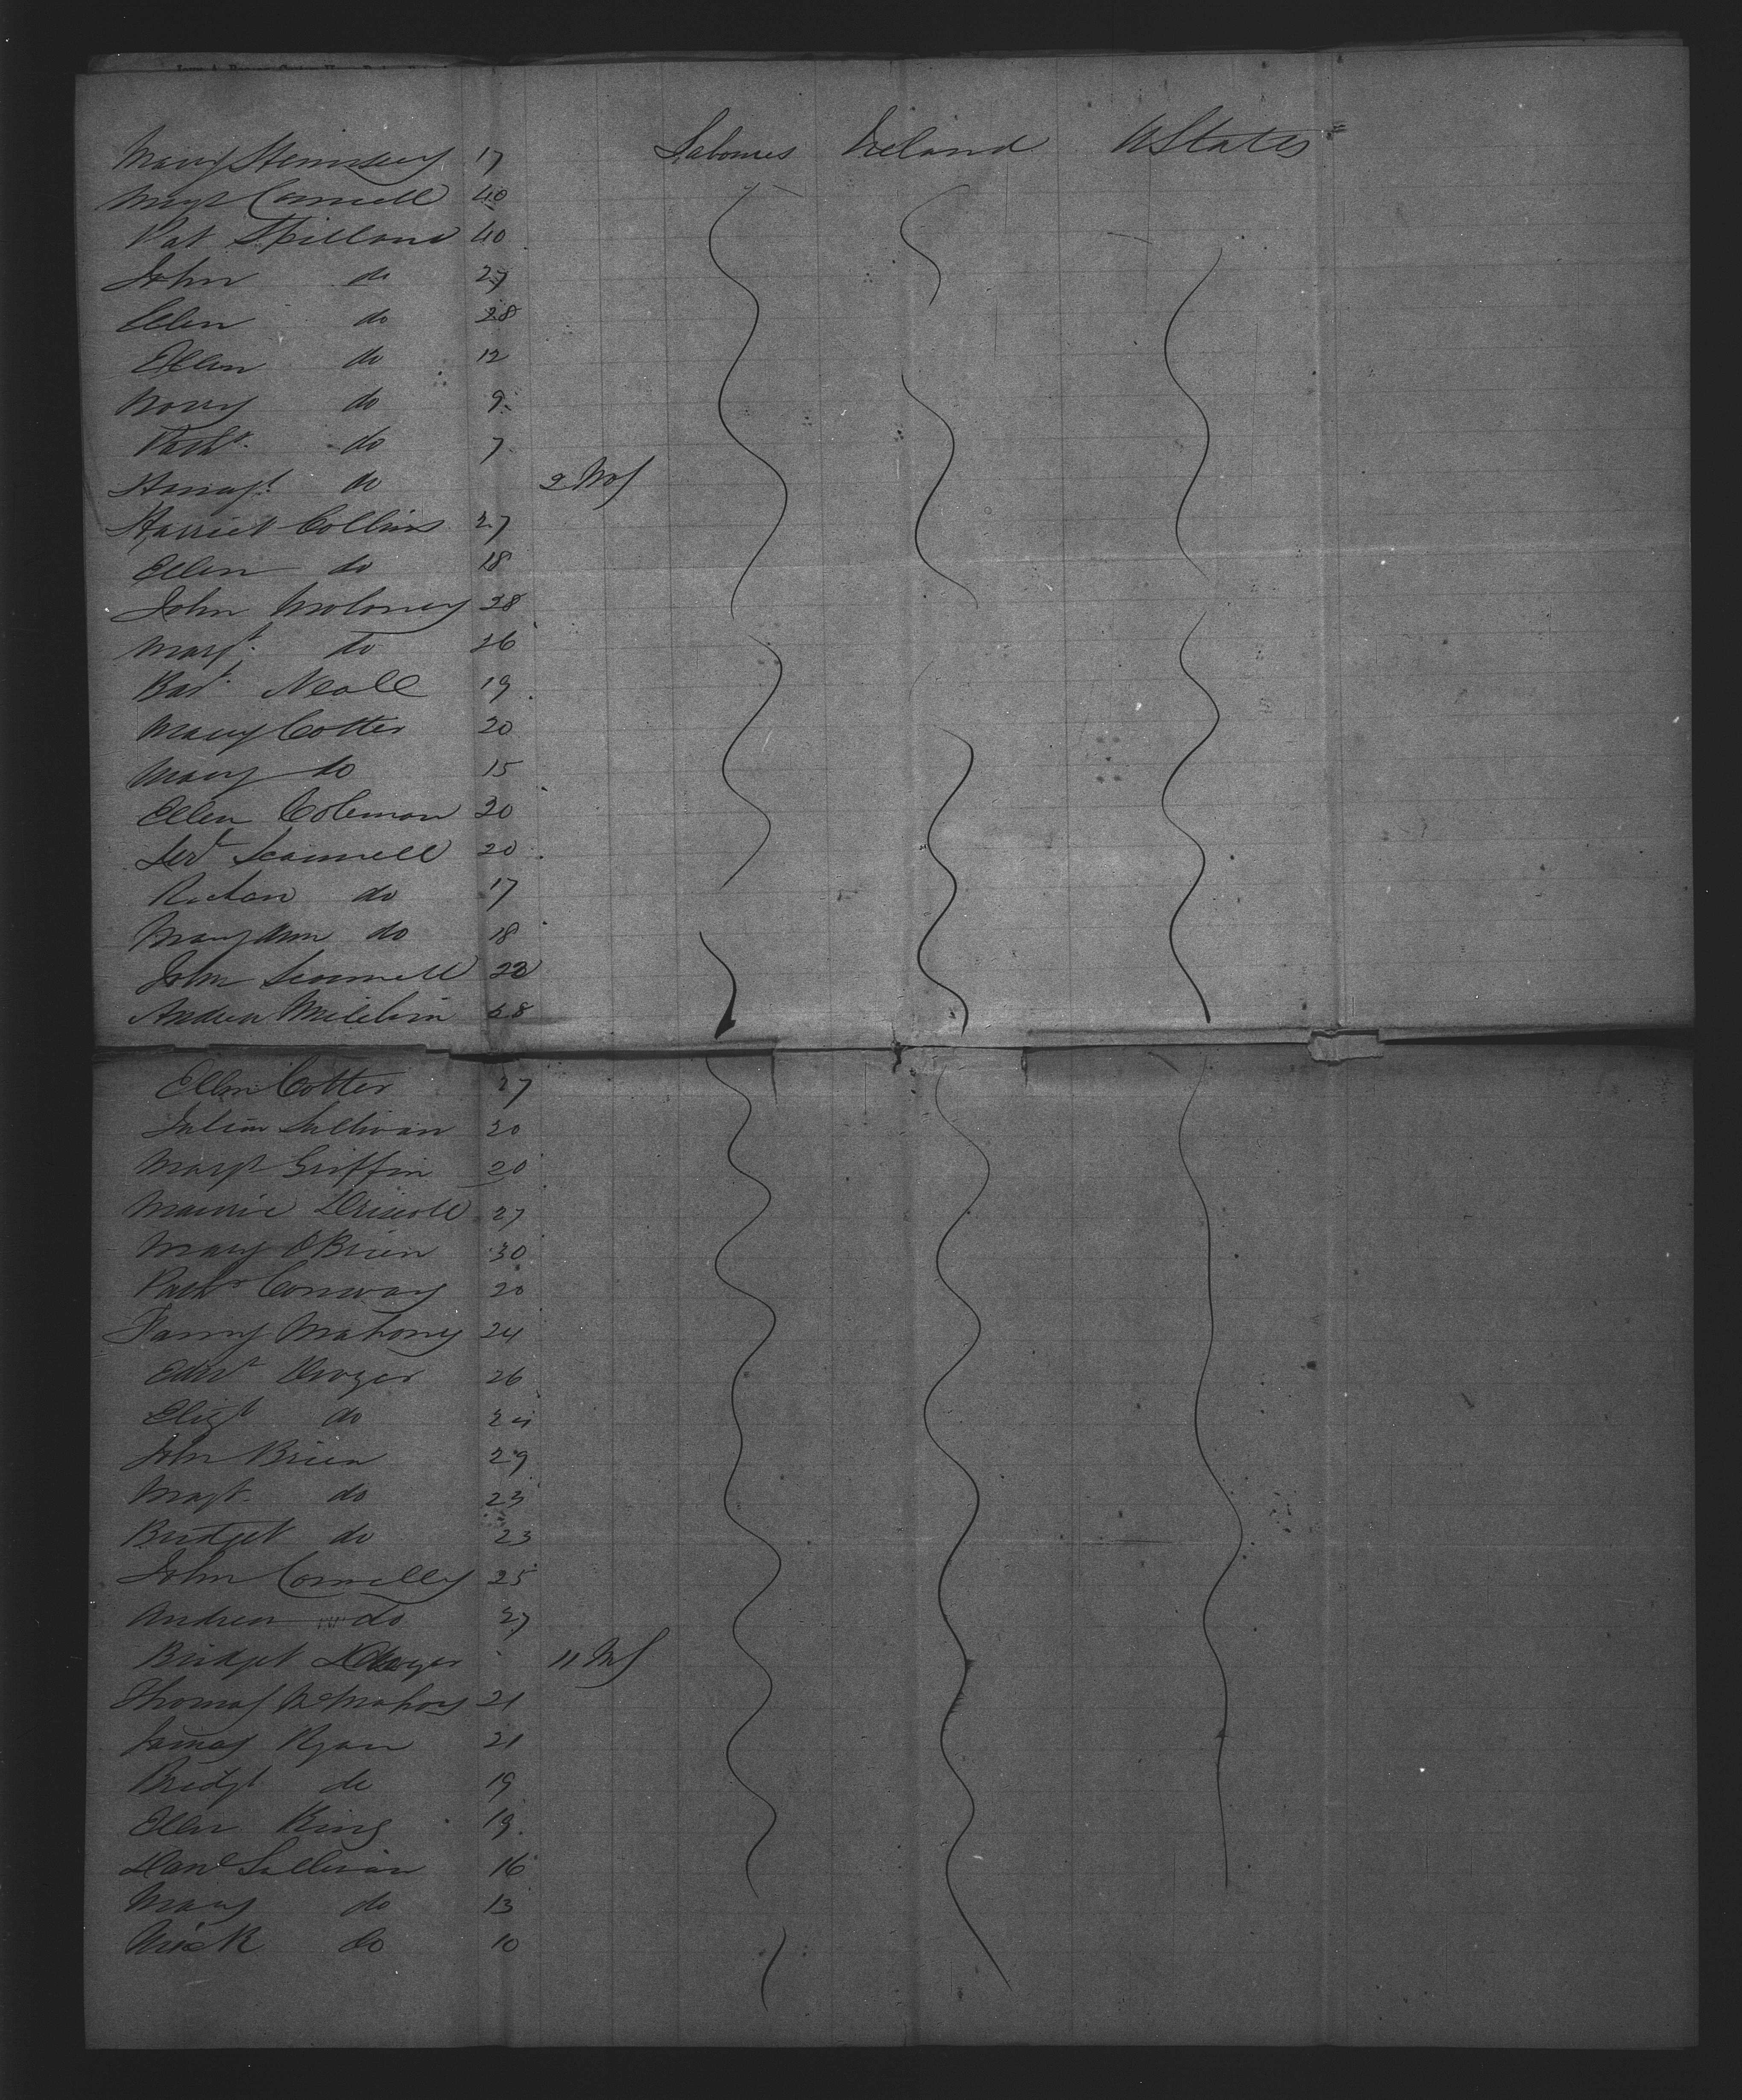 Mary Hennessy 17 Labourers Ireland UStates
Margt Connell 40
Pat Spillane 40
John do 27
Ellen do 28
Ellen do 12
Nory do 9
Patk do 7
Hanngt. do 2 Mos
Harriet Collins 27
Ellen do 18
John Moloney 28
Margt. do 26
Bart. Neale 19
Mary Cotter 20
Mary do 15
Ellen Coleman 20
Jerd Scannell 20
do 17
Mary Ann do 18
John Scannell 22
Andrew 28
Ellen Cotter 27
Julia Sullivan 20
Margt Griffin 20
Maurice Driscoll 27
Mary OBrien 30
Patk Conway 20
Fanny Mahony 24
Edwd Dwyer 26
Elizt do 24
John Brien 29
Magt. do 23
Bridget do 23
John Connelly 25
Andrew do 27
Bridget Dwyer 11 Ms
Thomas McMahon 21
James Ryan 21
Bridgt do 19
Ellen King 19
Danl Sullivan 16
Mary do 13
Mick do 10